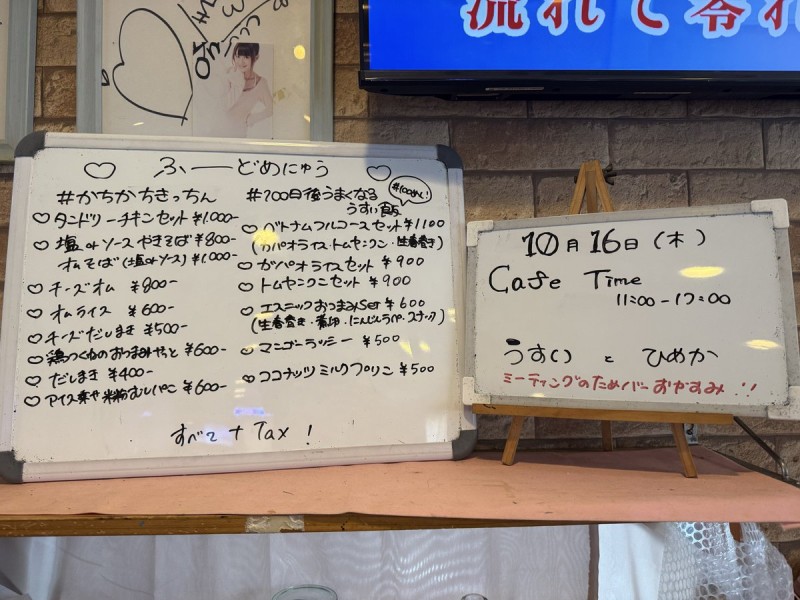 流れて零れ
ふーどめにゅう
#かちかちきっちん
タンドリーチキンセット ¥1.000-
塩orソースやきそば ¥800-
オムそば(塩orソース) ¥1.000-
チーズオム ¥800-
オムライス ¥600-
チーズだしまき ¥500-
鶏つくねのおつまみ ¥600-
だしまき ¥400-
¥600-
#700日後うまくなる
うすい飯
#100めし!
ベトナムフルコースセット ¥1100
(ガパオライス・トムヤンクン・生春巻き)
ガパオライスセット ¥900
トムヤンクンセット ¥900
エスニックおつまみset ¥600
(生春巻き・ ・にんじんラペ・スナック)
マンゴーラッシー ¥500
ココナッツミルクプリン ¥500
すべて + Tax !
10月16日(木)
Cafe Time
11:00-17:00
うすい と ひめか
ミーティングのためバーおやすみ!!